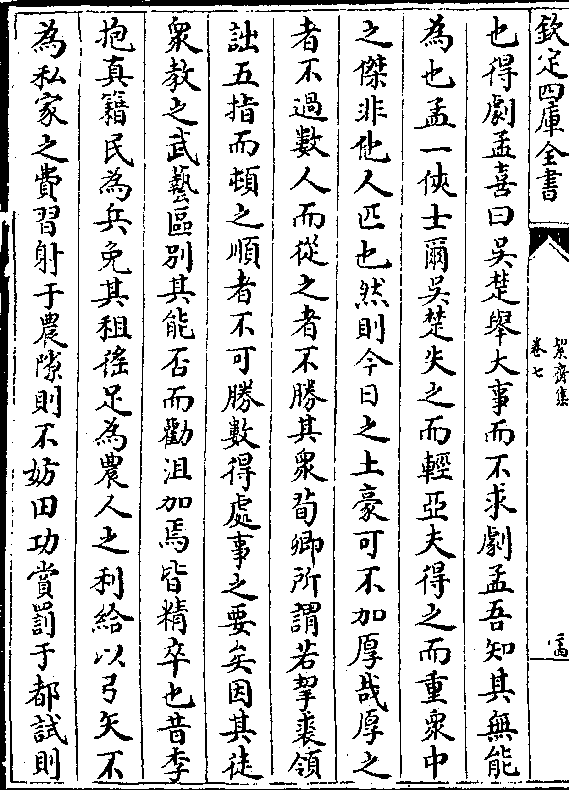 欽定四庫全書
絜齋集
卷七
也得劇孟喜曰吳楚舉大事而不求劇孟吾知其無能
為也孟一俠士爾吳楚失之而輕亞夫得之而重衆中
之傑非他人匹也然則今日之土豪可不加厚哉厚之
者不過數人而從之者不勝其衆荀卿所謂若挈裘領
詘五指而頓之順者不可勝數得處事之要矣因其徒
衆教之武藝區别其能否而勸沮加焉皆精卒也昔李
抱真籍民為兵免其租徭足為農人之利給以弓矢不
為私家之費習射于農隙則不妨田功賞罰于都試則